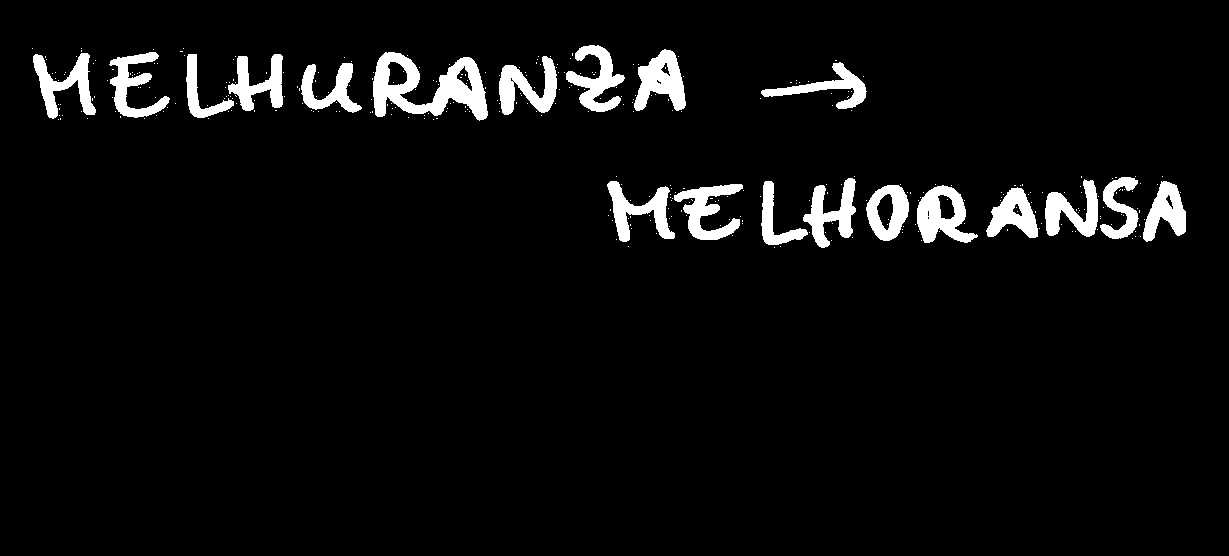 MELHURANZA →
MELHORANSA